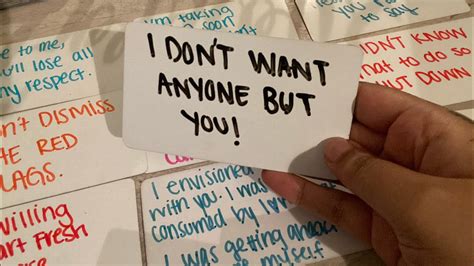 I'm taking
to say.
e to me,
u'll lose all
my respect.
I DON'T WANT
ANYONE BUT
YOU!
DIDN'T KNOW
hat to do so
HUT DOWN.
n't DISMISS
HE RED
LAGS.
willing
art Fresh
I envisioned
with you. I was
consumed by
I was getting ahead
myself